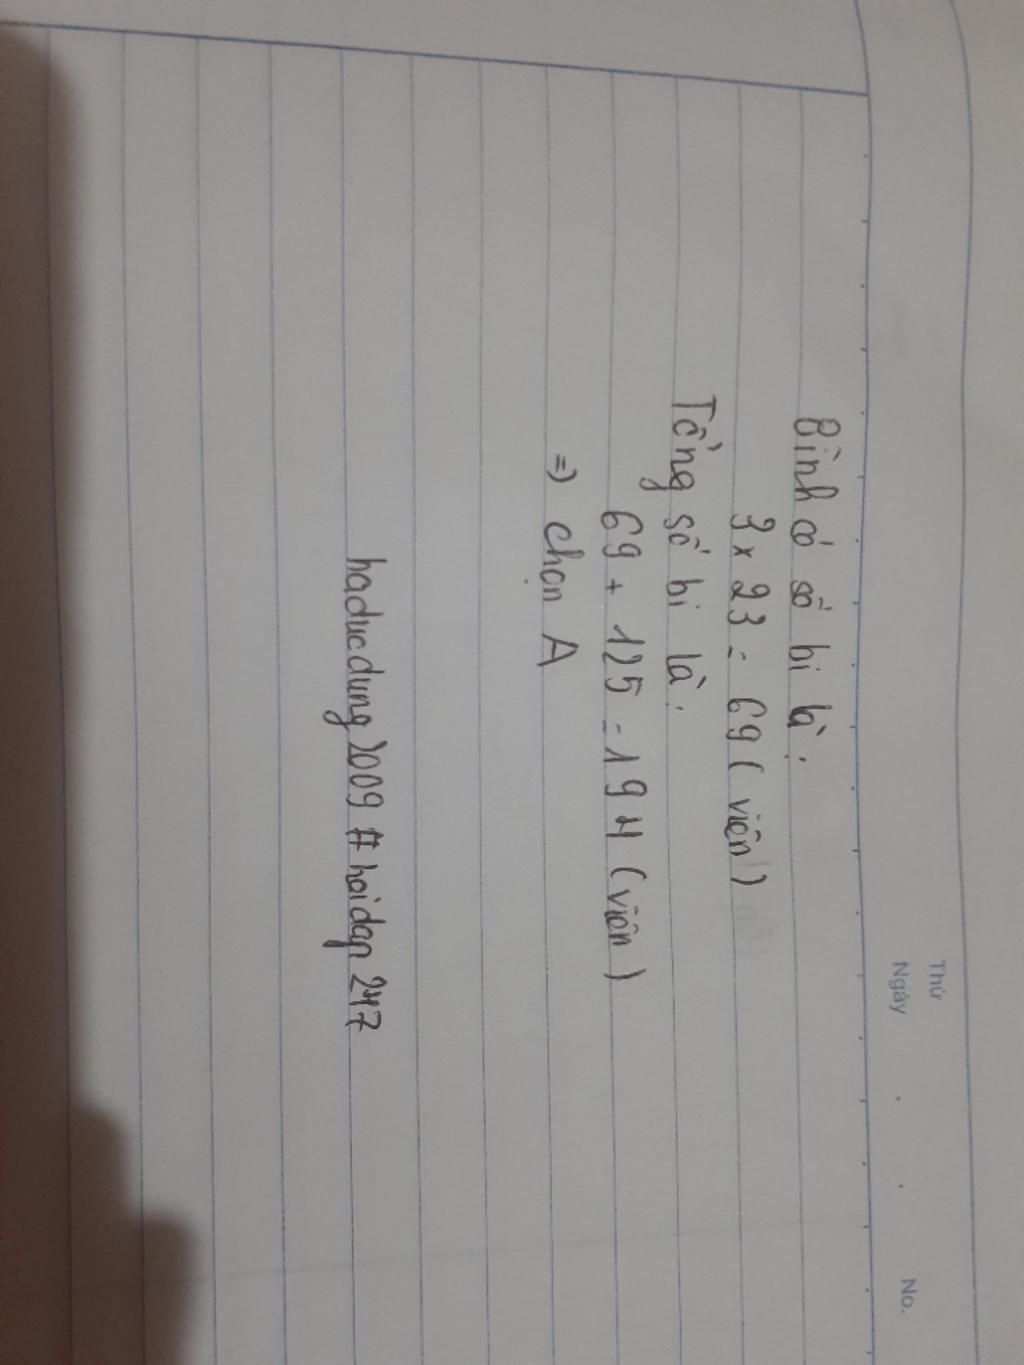 Thứ
Ngày . . No.
Bình có số bi là:
3 x 23 = 69 (viên)
Tổng số bi là:
69 + 125 = 194 (viên)
=> chọn A
haducdung2009 # hoidap 247